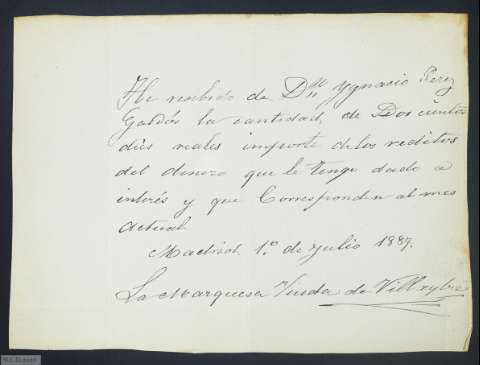 He recibido de Dn Ygnacio Perez
Galdós la cantidad, de Doscientos
diés reales importe de los reditos
del dinero que le tengo dado a
interés y que Corresponden al mes
actual
Madrid 1.º de Julio 1887.
La Marquesa Viuda de